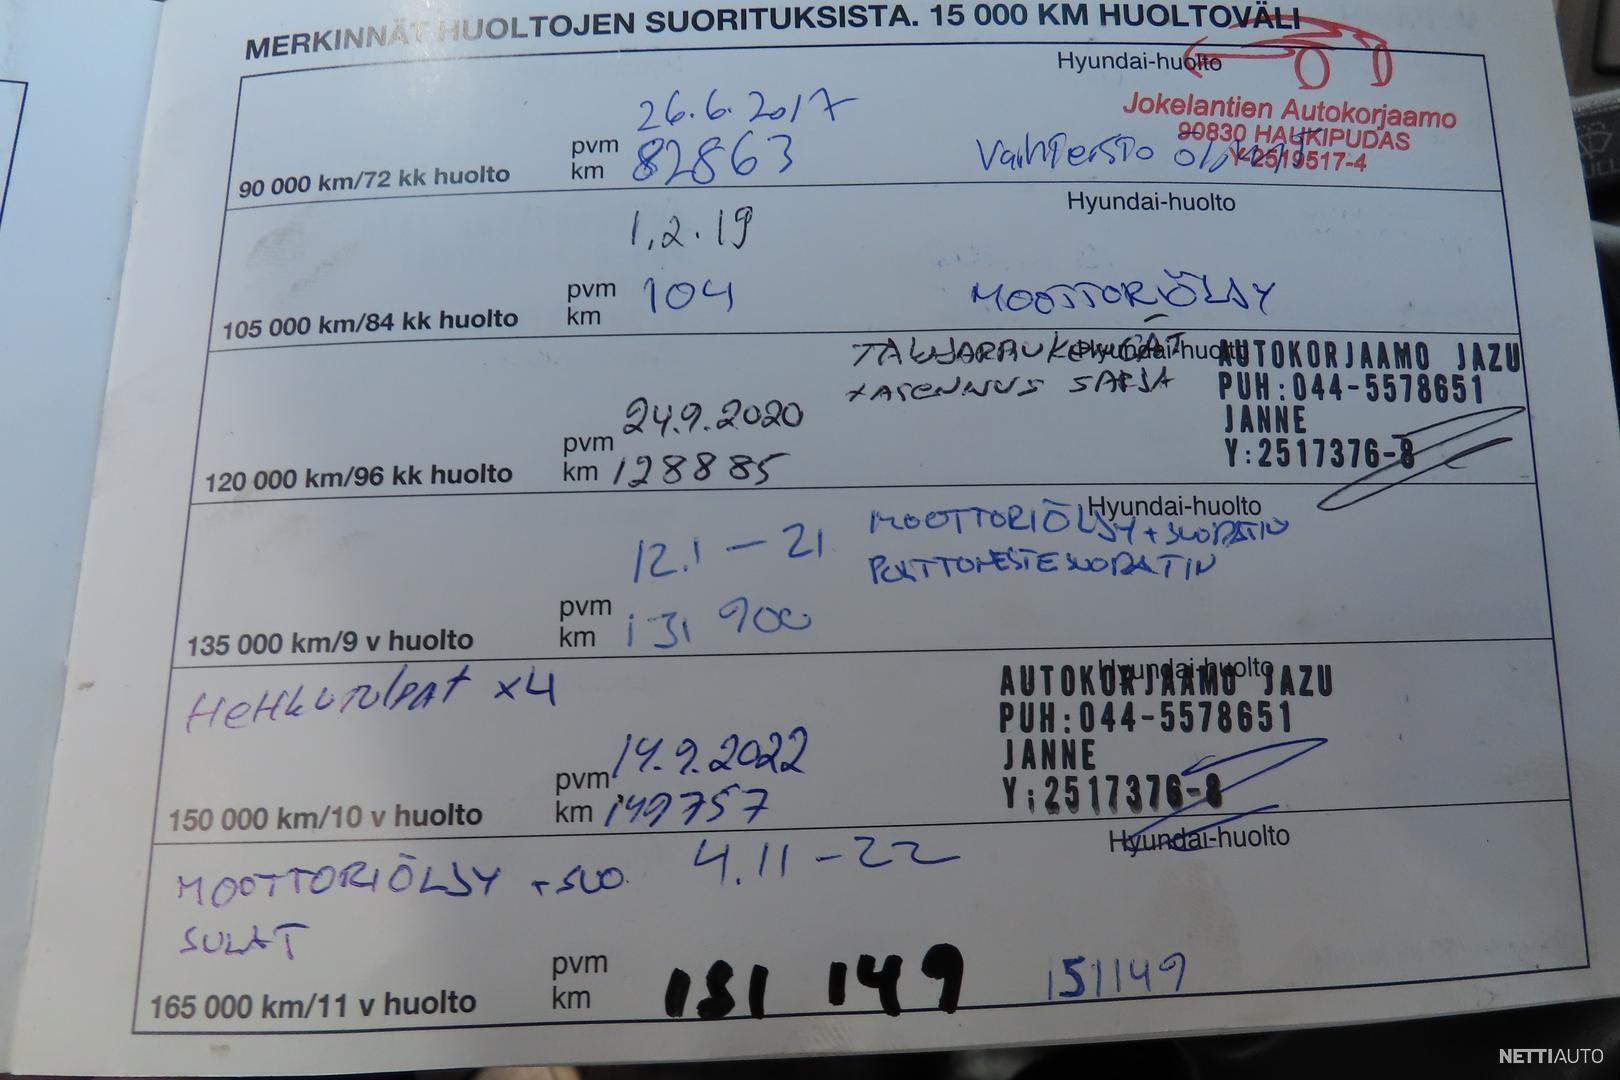 MERKINNÄT HUOLTOJEN SUORITUKSISTA. 15 000 KM HUOLTOVÄLI
Hyundai-huolto
26.6.2017
Jokelantien Autokorjaamo
90830 HAUKIPUDAS
Y-2519517-4
pvm
km 82863
Vaihteisto öljyt
90 000 km/72 kk huolto
Hyundai-huolto
1.2.19
pvm
km
104
MOOTTORIÖLJY
105 000 km/84 kk huolto
Hyundai-huolto
TAKAJARRUKENGÄT
+ASENNUS SARJA
AUTOKORJAAMO JAZU
PUH:044-5578651
JANNE
Y:2517376-8
24.9.2020
pvm
km 128885
120 000 km/96 kk huolto
Hyundai-huolto
12.1-21
MOOTTORIÖLJY+SUODATIN
POLTTONESTESUODATIN
pvm
km 131 900
135 000 km/9 v huolto
Hyundai-huolto
HeHkutulpat x4
AUTOKORJAAMO JAZU
PUH:044-5578651
JANNE
Y:2517376-8
pvm 14.9.2022
km 149757
150 000 km/10 v huolto
Hyundai-huolto
MOOTTORIÖLJY +SUO.
4.11-22
SULAT
pvm
km 151 149
151149
165 000 km/11 v huolto
NETTIAUTO